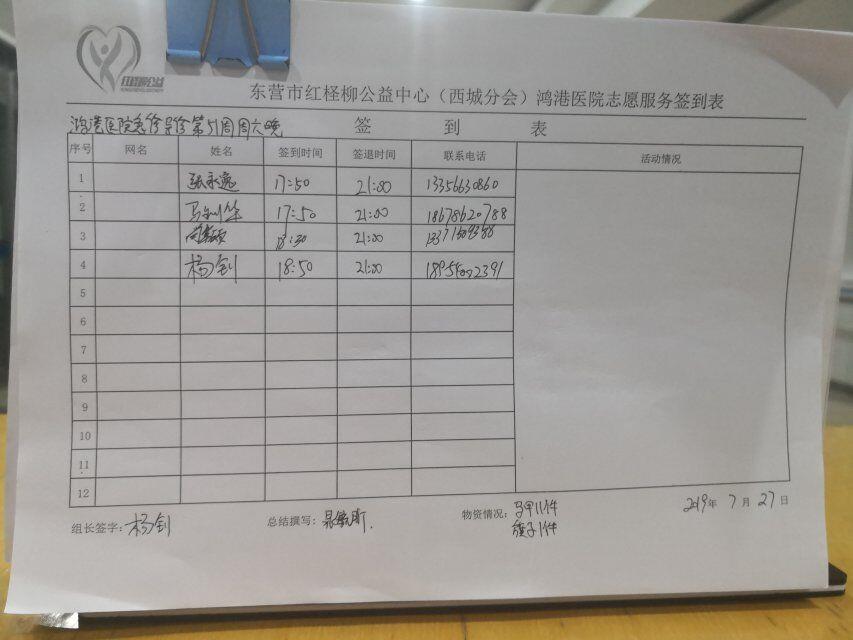 红柽柳公益
东营市红柽柳公益中心（西城分会）鸿港医院志愿服务签到表
鸿港医院急诊导诊第51周周六晚 签 到 表
序号 网名 姓名 签到时间 签退时间 联系电话 活动情况
1 张永逸 17:50 21:00 13356630860
2 17:50 21:00 18678620788
3 18:30 21:00
4 杨钊 18:50 21:00
5
6
7
8
9
10
11
12
组长签字：杨钊 总结撰写： 物资情况：马甲11件 2019年 7 月 27 日
旗子1件